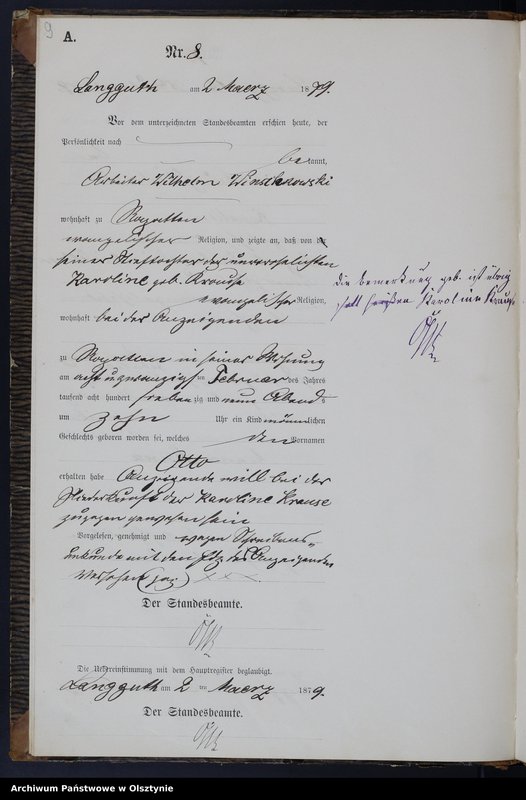 9
A.
Nr. 8.
Langguth am 2 Maerz 1879.
Vor dem unterzeichneten Standesbeamten erschien heute, der
Persönlichkeit nach
bekannt,
Arbeiter Wilhelm
wohnhaft zu
evangelischer Religion, und zeigte an, daß von der
seiner Stieftochter der unverehelichten
Karoline geb. Krause
evangelischer Religion,
wohnhaft bei der Anzeigenden
zu in seiner Wohnung
am acht u zwanzigsten Februar des Jahres
tausend acht hundert siebenzig und neun Abends
um zehn Uhr ein Kind männlichen
Geschlechts geboren worden sei, welches den Vornamen
Otto
erhalten habe Anzeigende will bei der
Niederkunft der Karoline Krause
zugegen gewesen sein
Vorgelesen, genehmigt und wegen Schreibens„
unkunde mit den des Anzeigenden
versehen xxx
Der Standesbeamte.
Die Uebereinstimmung mit dem Hauptregister beglaubigt.
Langguth am 2 ten Maerz 1879.
Der Standesbeamte.
die Bemerkung geb. ist
statt Karoline Krause
Archiwum Państwowe w Olsztynie